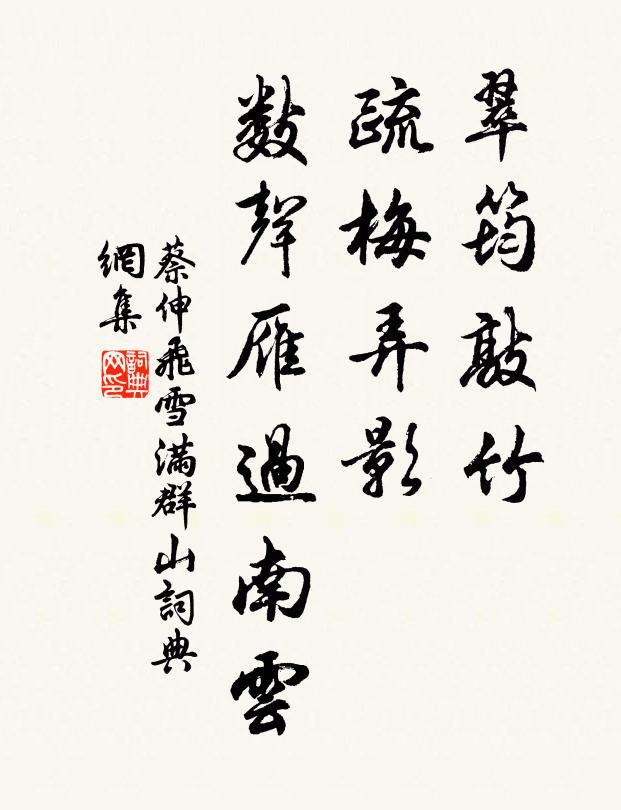 翠筠敲竹
疏梅弄影
數聲雁過南雲
蔡伸飛雪滿群山詞典
網集
詞典
网印